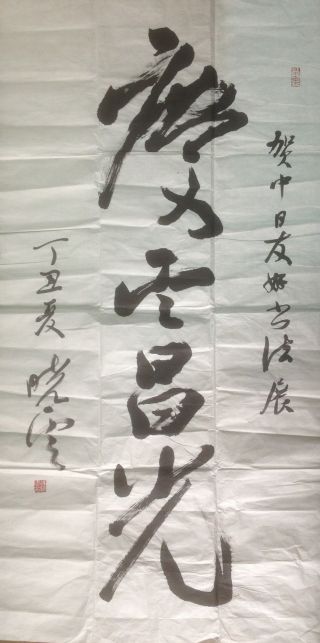 贺中日友好书法展
慶云昌光
丁丑夏 晓雲